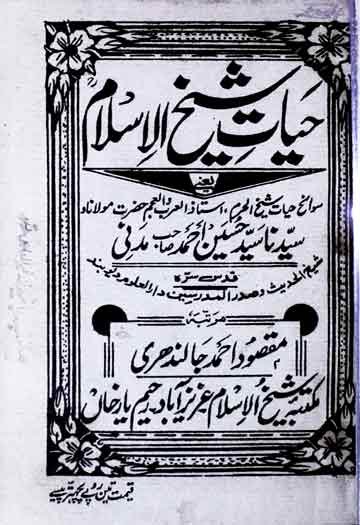 حیاتِ شیخ الاسلام
یعنی
سوانح حیات شیخ الحرم، استاذ العرب والعجم حضرت مولانا و
سیدنا سید حسین احمد صاحب مدنی
قدس سرہٗ
شیخ الحدیث و صدر المدرسین دارالعلوم دیوبند
مرتبہ
مقصود احمد جالندھری
مکتبہ شیخ الاسلام عزیز آباد، رحیم یار خاں
قیمت تین روپے پچھتر پیسے